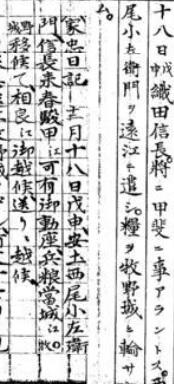 十八日戊申織田信長、將ニ甲斐ニ事アラントス。
尾小左衛門ヲ遠江ニ遣シ、糧ヲ牧野城ニ輸サ
ム。
家忠日記 十二月十八日戊申、安土西尾小左衛
門、信長來春駿甲江可有御動座、兵粮當城江牧
野城移候て、相良江御越候、送り越候、